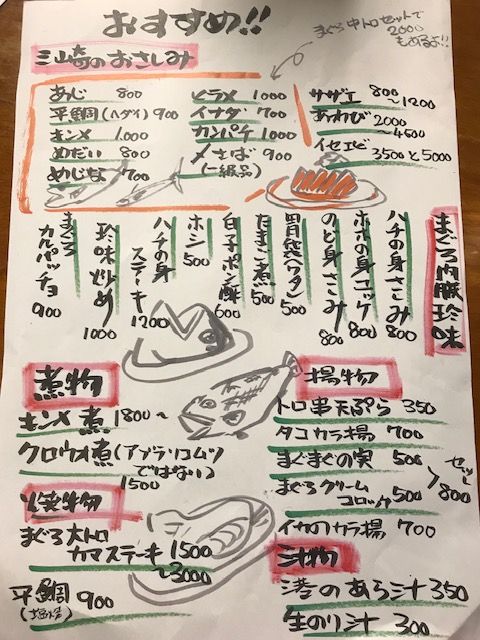 おすすめ!!
まぐろ中トロセットで
2000
もあるよ!!
三崎のおさしみ
あじ 800
平鯛(ヘダイ) 900
キンメ 1,000
めだい 800
めじな 700
ヒラメ 1000
イナダ 700
カンパチ 1000
〆さば 900
(一級品)
サザエ 800
〜1200
あわび 2000
〜4500
イセエビ
3500と5000
まぐろ内臓珍味
ハチの身さしみ 800
ホホの身ユッケ 800
のど身さしみ 800
胃袋(ワタ) 500
たまご煮 500
白子ポン酢 600
ホシ 500
ハチの身
ステーキ 1200
珍味炒め 1000
まぐろ
カルパッチョ 900
煮物
キンメ煮 1800〜
クロウオ煮(アブラソコムツ
ではない)
1500
焼物
まぐろ大トロ
カマステーキ 1500
〜3000
平鯛 900
(塩焼)
揚物
トロ串天ぷら 350
タコカラ揚 700
まぐまぐの実 500
まぐろクリーム
コロッケ 500
セット
800
イカのカラ揚 700
汁物
港のあら汁 350
生のり汁 300